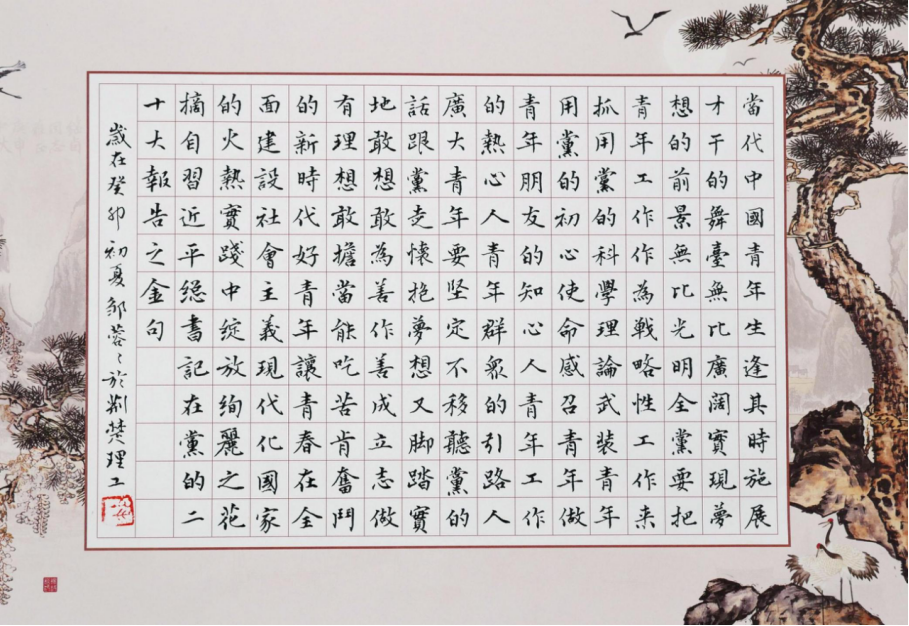 當代中國青年生逢其時施展
才干的舞臺無比廣闊實現夢
想的前景無比光明全黨要把
青年工作作為戦略性工作来
抓用黨的科學理論武装青年
用黨的初心使命感召青年做
青年朋友的知心人青年工作
的熱心人青年群眾的引路人
廣大青年要坚定不移聽黨的
話跟黨走懷抱夢想又脚踏實
地敢想敢為善作善成立志做
有理想敢擔當能吃苦肯奮鬥
的新時代好青年讓青春在全
面建設社會主義現代化國家
的火熱實踐中綻放絢麗之花
摘自習近平總書記在黨的二
十大報告之金句
歲在癸卯初夏鄒蓉〻於荆楚理工